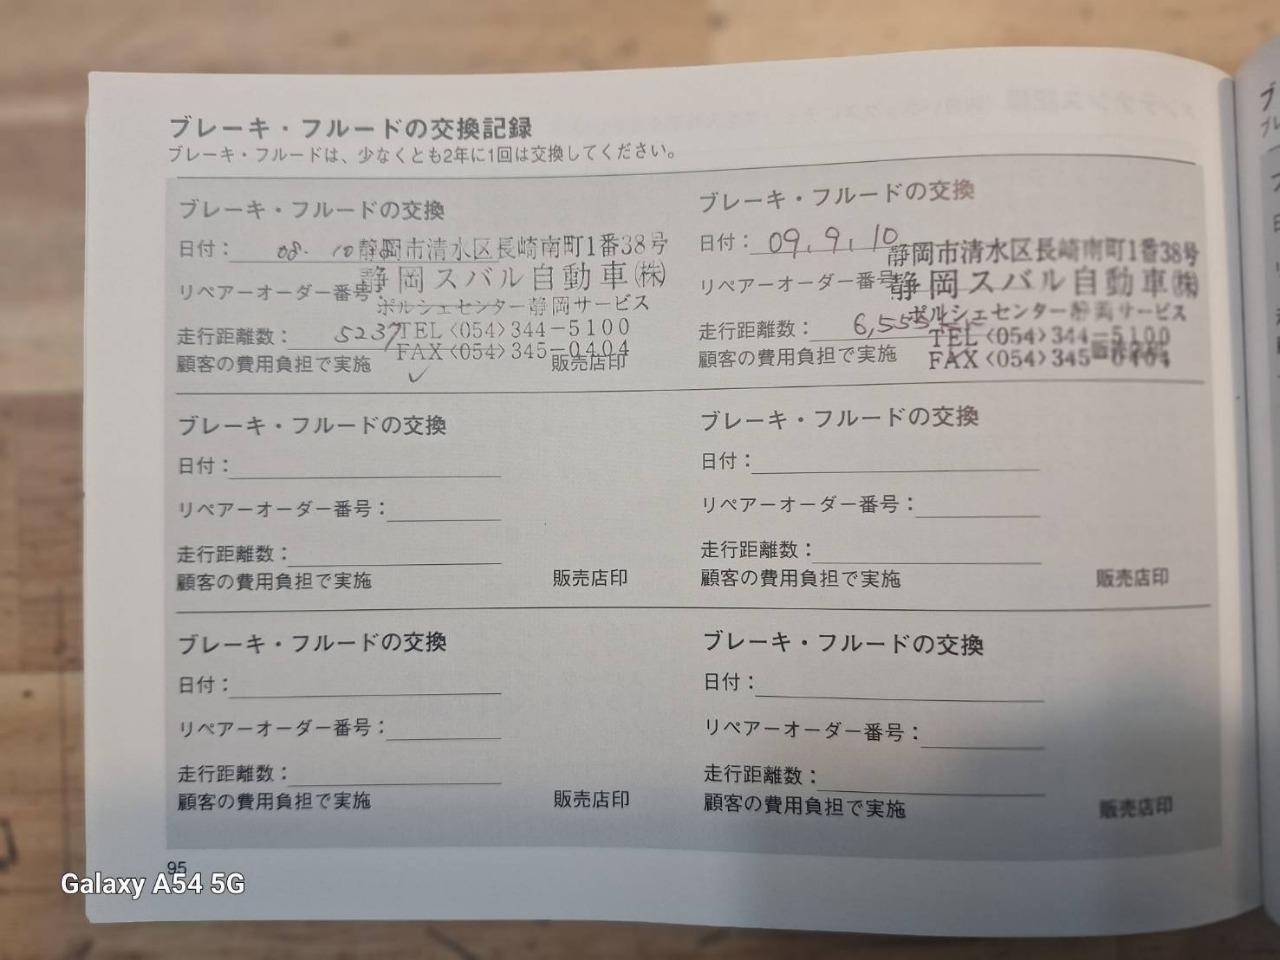 ブレーキ・フルードの交換記録
ブレーキ・フルードは、少なくとも2年に1回は交換してください。
ブレーキ・フルードの交換
日付：08. 10
静岡市清水区長崎南町1番38号
静岡スバル自動車㈱
リペアーオーダー番号：
ポルシェセンター静岡サービス
走行距離数：5237
TEL〈054〉344−5100
FAX〈054〉345−0404
顧客の費用負担で実施 ✓
販売店印
ブレーキ・フルードの交換
日付：09. 9. 10
静岡市清水区長崎南町1番38号
静岡スバル自動車㈱
リペアーオーダー番号
ポルシェセンター静岡サービス
走行距離数：6,555
TEL〈054〉344−5100
FAX〈054〉345−0404
顧客の費用負担で実施
ブレーキ・フルードの交換
日付：
リペアーオーダー番号：
走行距離数：
顧客の費用負担で実施
販売店印
ブレーキ・フルードの交換
日付：
リペアーオーダー番号：
走行距離数：
顧客の費用負担で実施
販売店印
ブレーキ・フルードの交換
日付：
リペアーオーダー番号：
走行距離数：
顧客の費用負担で実施
販売店印
ブレーキ・フルードの交換
日付：
リペアーオーダー番号：
走行距離数：
顧客の費用負担で実施
販売店印
95
Galaxy A54 5G